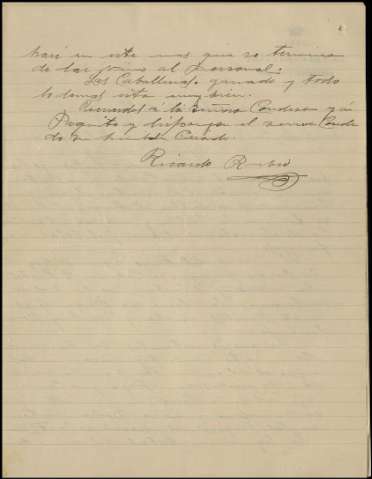 hará en este mes que se termina
de las al personal.
Las Caballerías, ganado y todo
lo demas esta muy bien.
Recuerdos á la Señora Condesa y á
Pepito y disponga el Señor Conde
de su Criado.
Ricardo Rubio